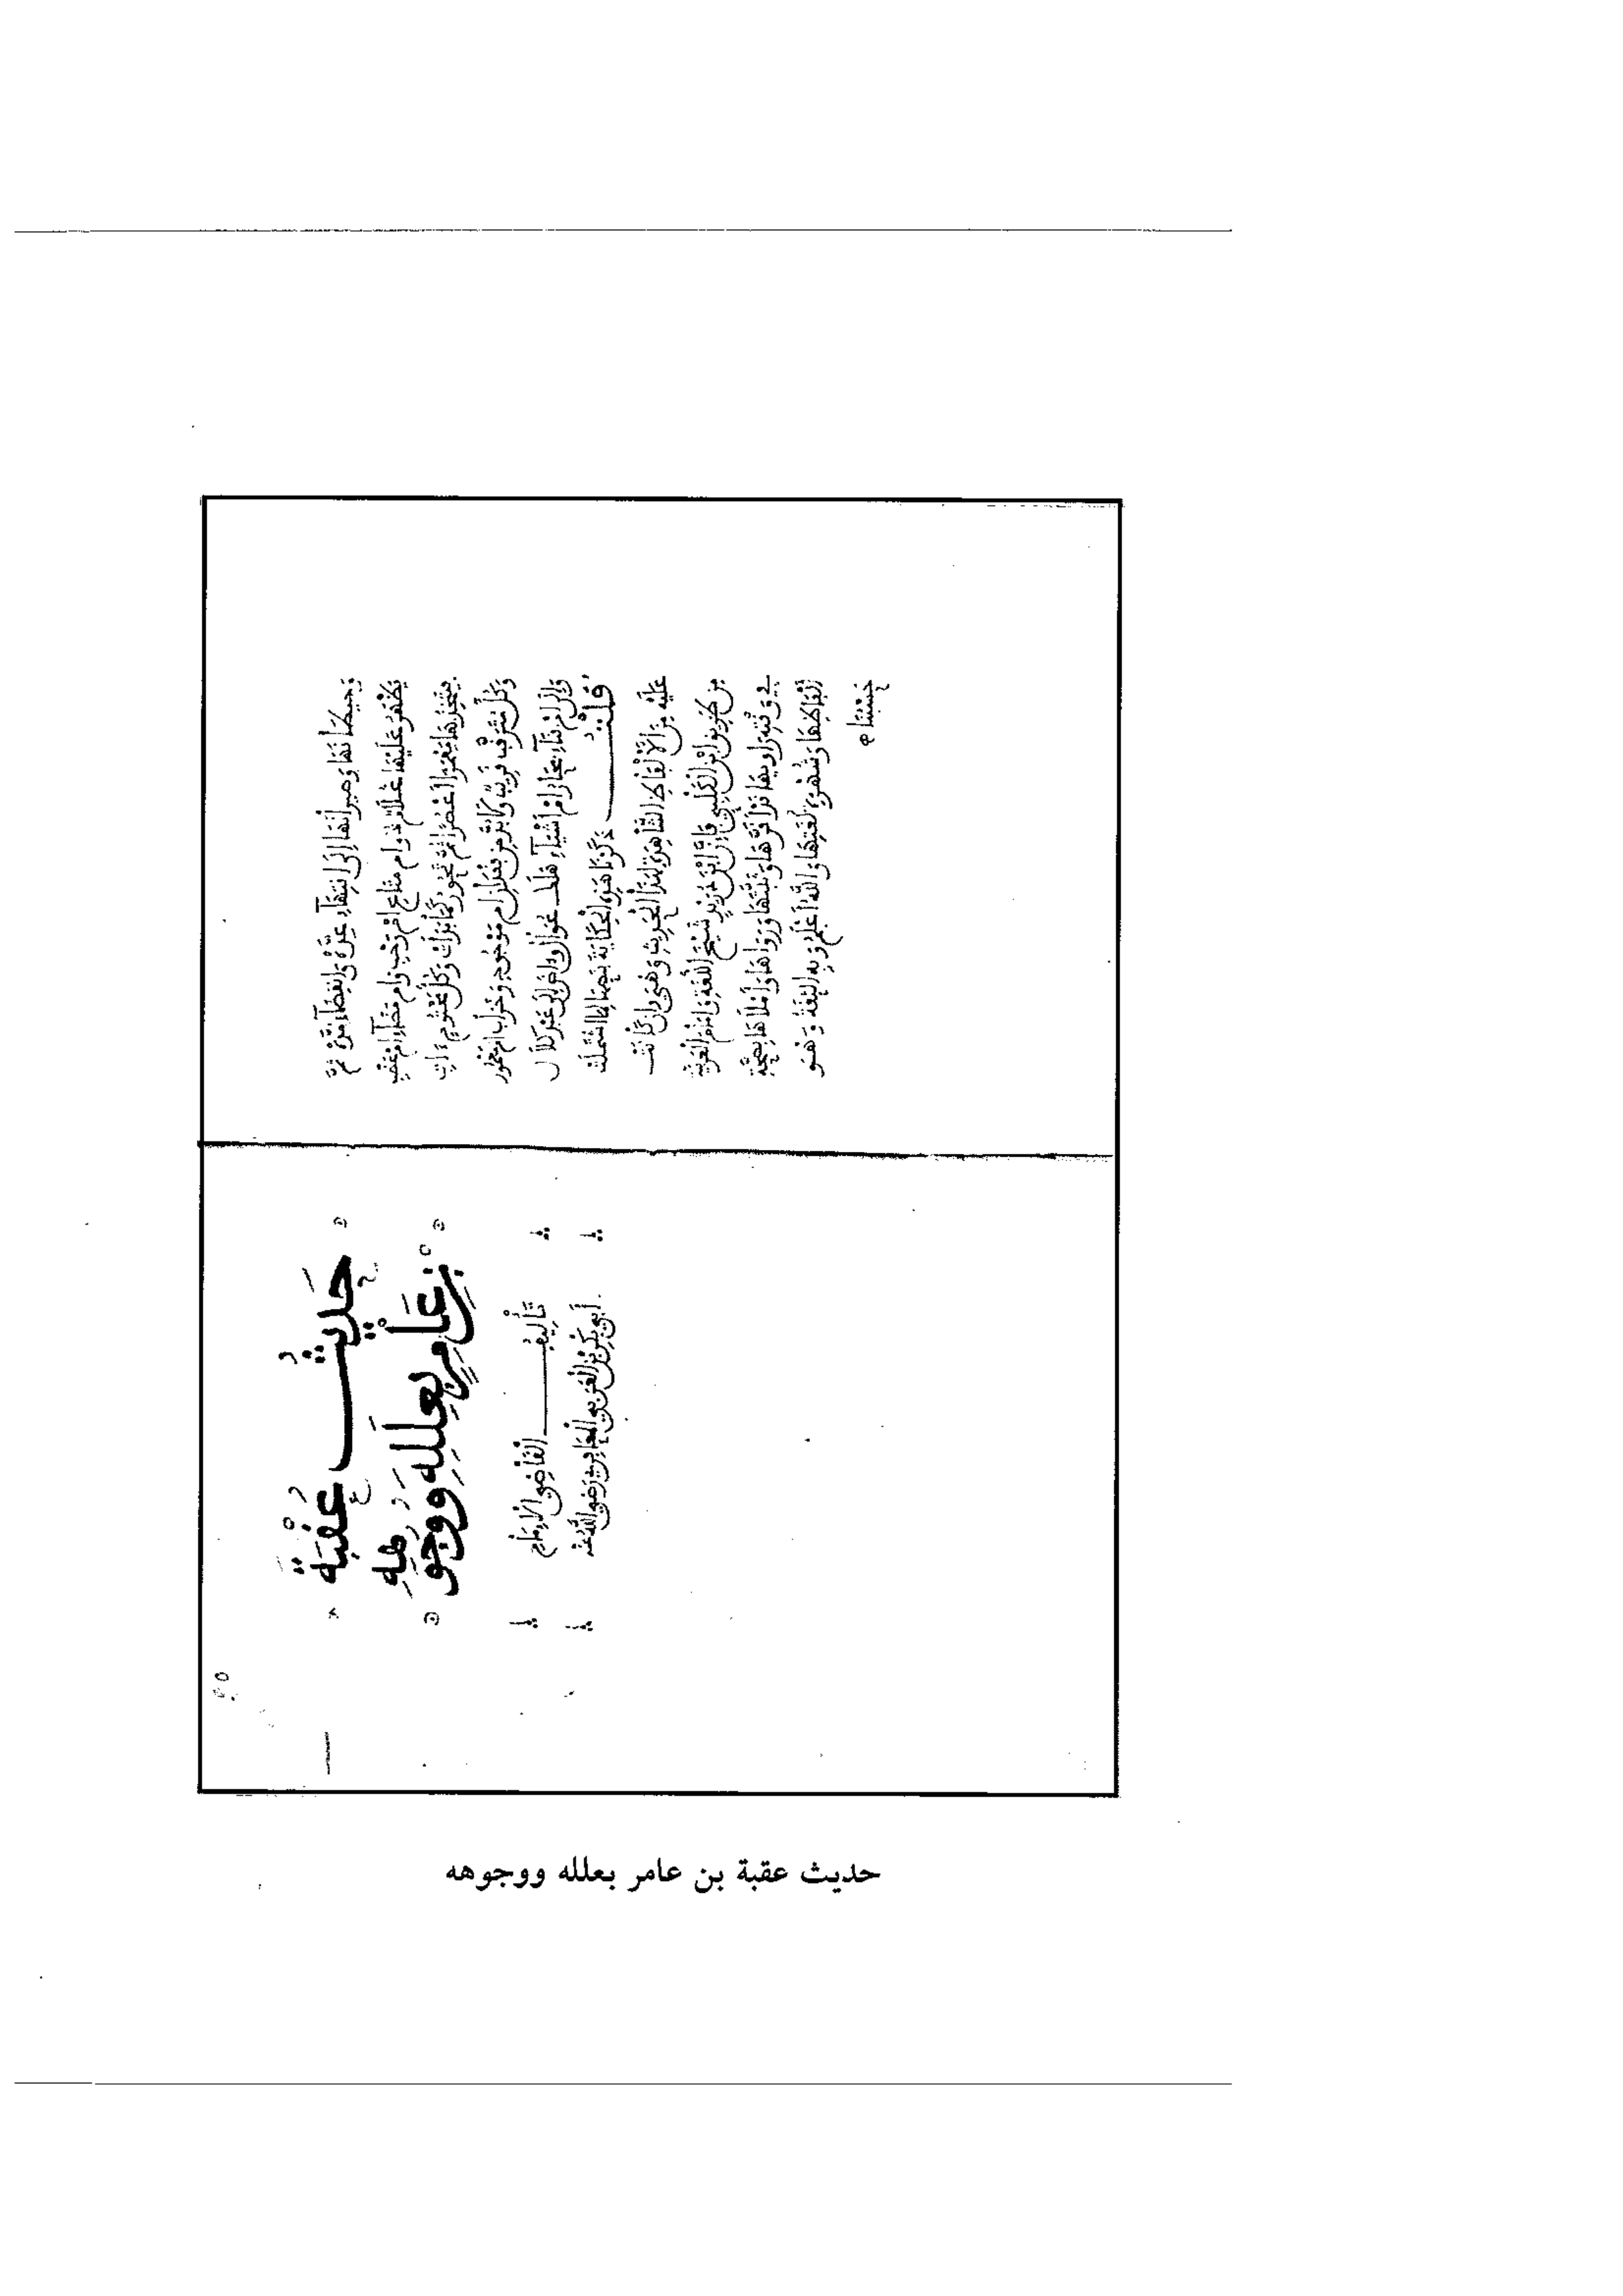 وحيطانها وصيرانها إلى انتهاء عدة وانقضاء مدة ثم
يظهر عليها غلام ذو ام متاع ام رحب وام مضاء ام عضب
فيتخذها معمرا اعصرا ثم تحور كما بدات وكل محتوم ءات
وكل مترقب قريب ولا بد من فقدان ام موجود وخراب ام معمور
والى ام ناء مجاز ام اشياء هلك عوار
قلت ذكرنا هذه الحكاية بنصها لما اشتملت
عليه من الألفاظ الشاهدة لهذا الحديث وهي وإن كانت
من طريق ابن الكلبي فإن ابن دريد شيخ اللغة وإمام العربية
في وقته راويها وثبتها ورواها وأملاها بصحة
ألفاظها وشهرة لغتها والله أعلم وبه الثقة وهو
حسبنا
حديث عقبة
بن عامر بعلله ووجوهه
تأليف القاضي الإمام
أبي بكر بن العربي المعافري رضي الله عنه
حديث عقبة بن عامر بعلله ووجوهه